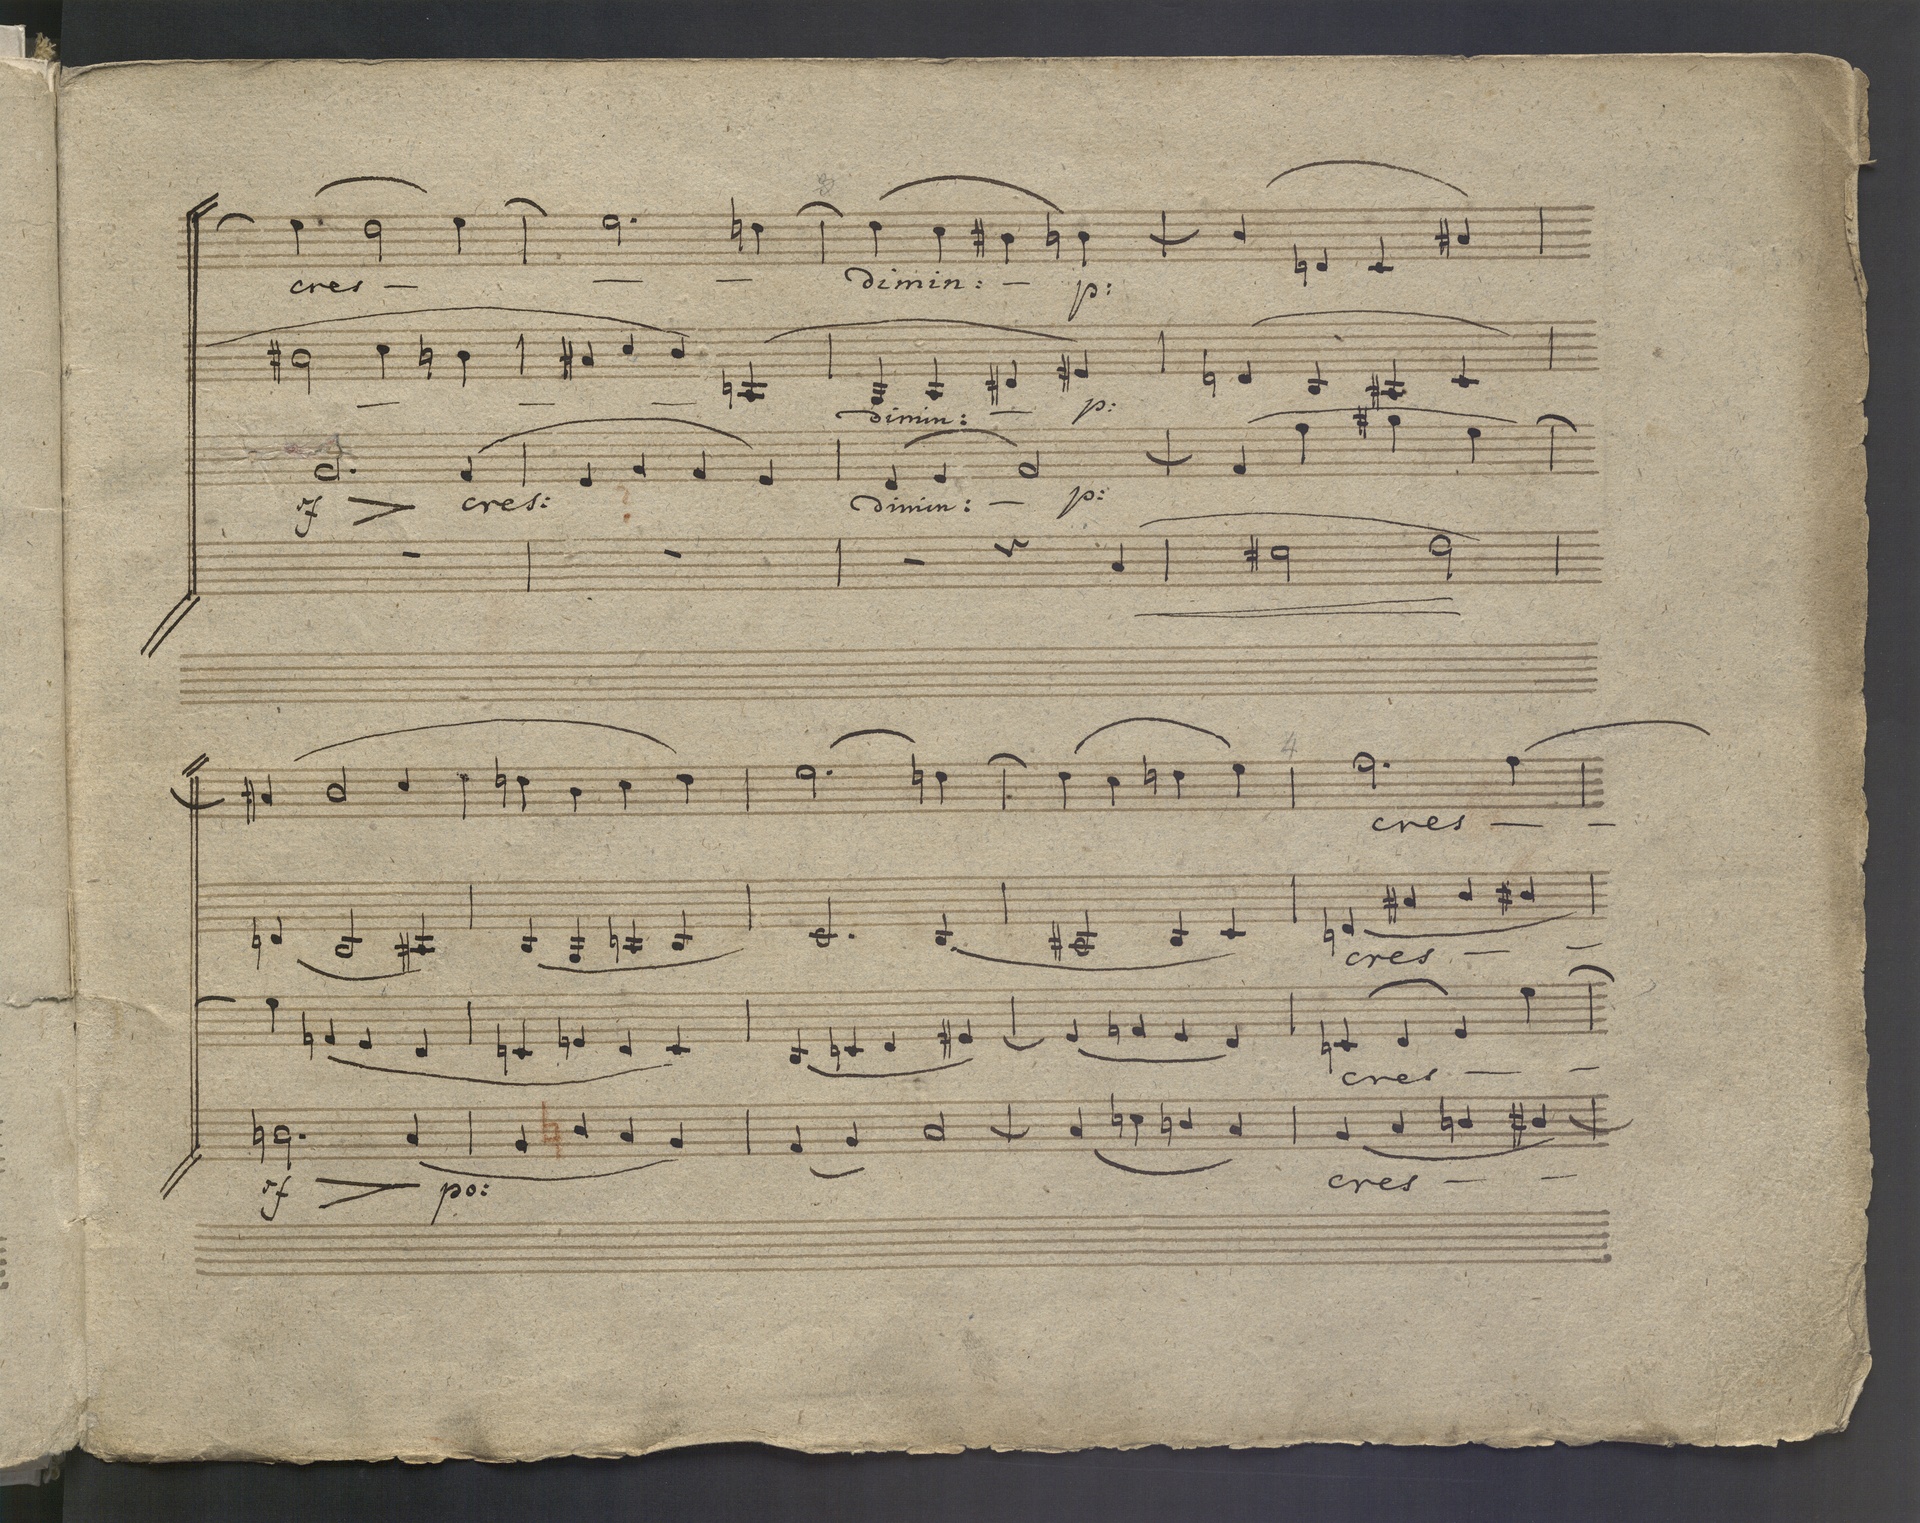 3
cres — — —
dimin: — p:
— — — dimin: — p:
sf cres: ? dimin: — p:
4
cres — —
cres — —
cres — —
sf po: cres — —